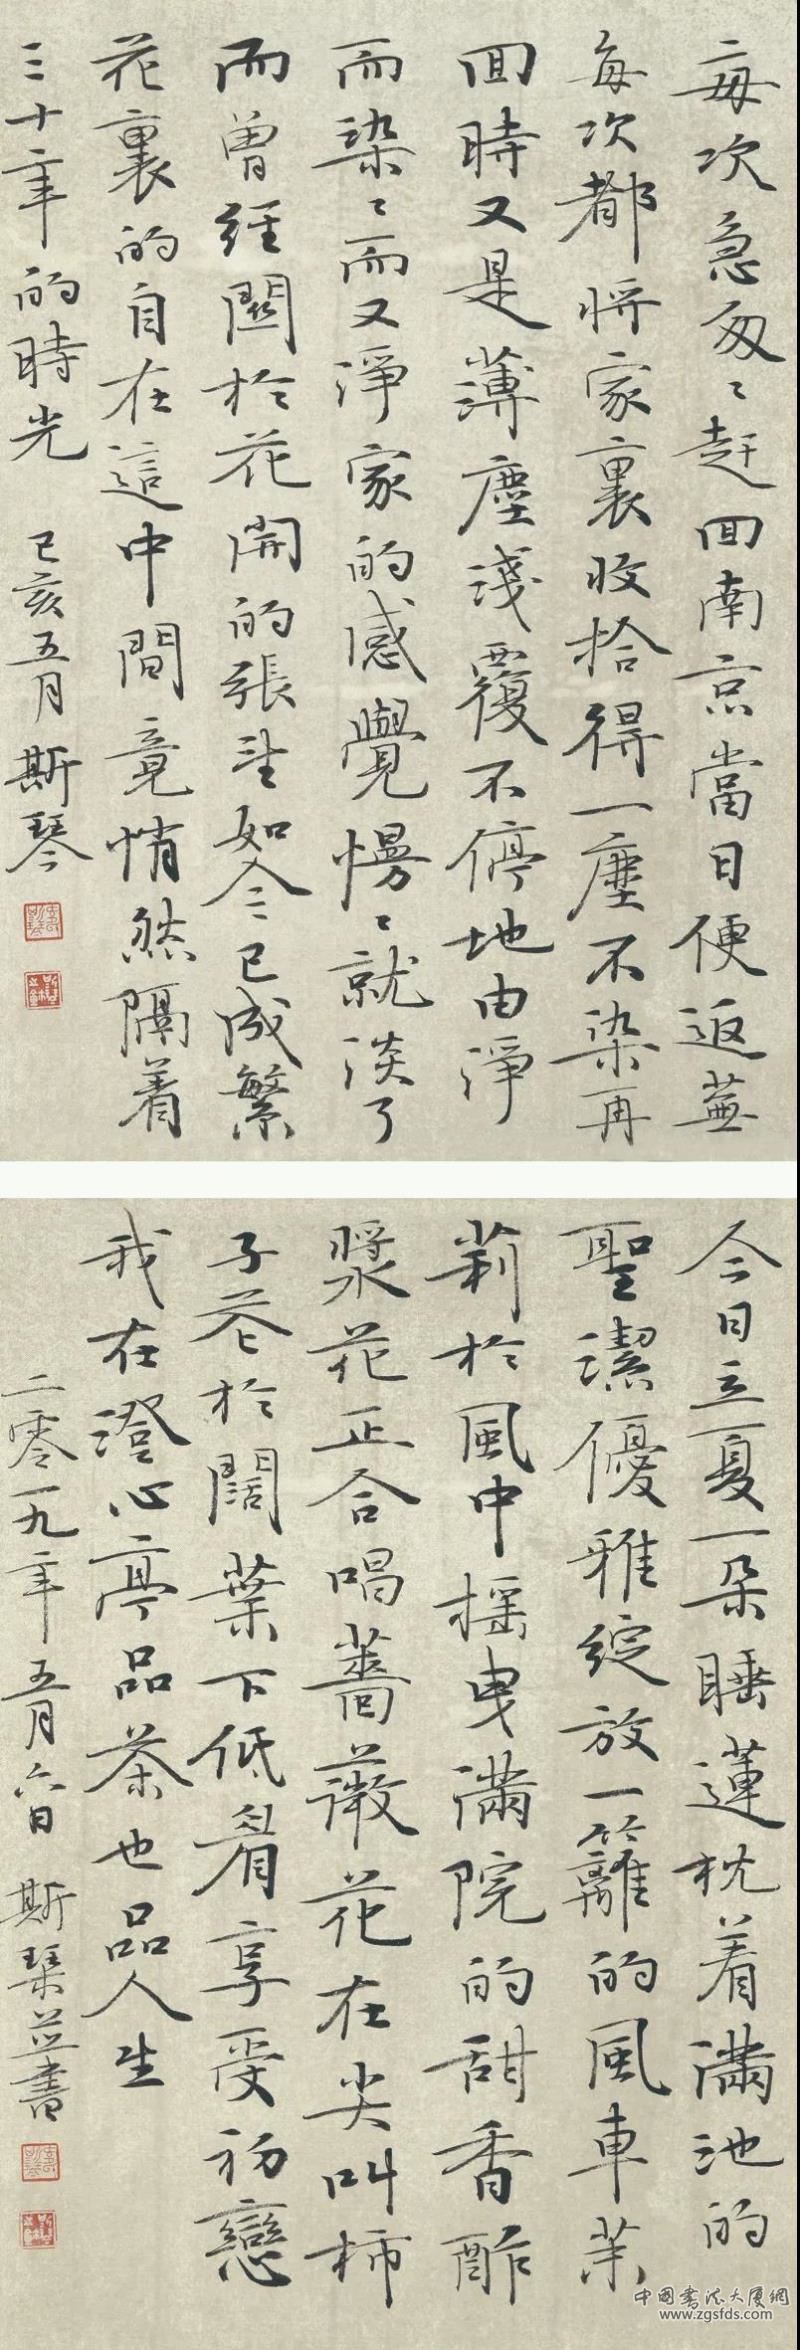 每次急匆〻趕回南京當日便返蕪
每次都將家裏收拾得一塵不染再
回時又是薄塵淺覆不停地由淨
而染〻而又淨家的感覺慢〻就淡了
而曾經關於花開的張望如今已成繁
花裏的自在這中間竟悄然隔着
三十年的時光
己亥五月 斯琴
今日立夏一朵睡蓮枕着滿池的
聖潔優雅綻放一籬的風車茉
莉於風中搖曳滿院的甜香酢
漿花正合唱薔薇花在尖叫柿
子花於闊葉下低眉享受初戀
我在澄心亭品茶也品人生
二零一九年五月六日 斯琴並書
中國書法大厦網
www.zgsfds.com